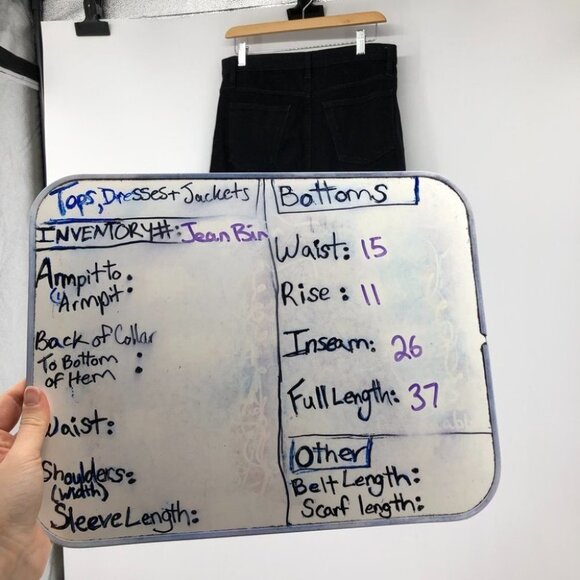 Tops, Dresses + Jackets
INVENTORY#: Jean Bin
Armpit to
Armpit:
Back of Collar
To Bottom
of Hem :
Waist:
Shoulders:
(width)
Sleeve Length:
Bottoms
Waist: 15
Rise: 11
Inseam: 26
Full Length: 37
Other
Belt Length:
Scarf length: